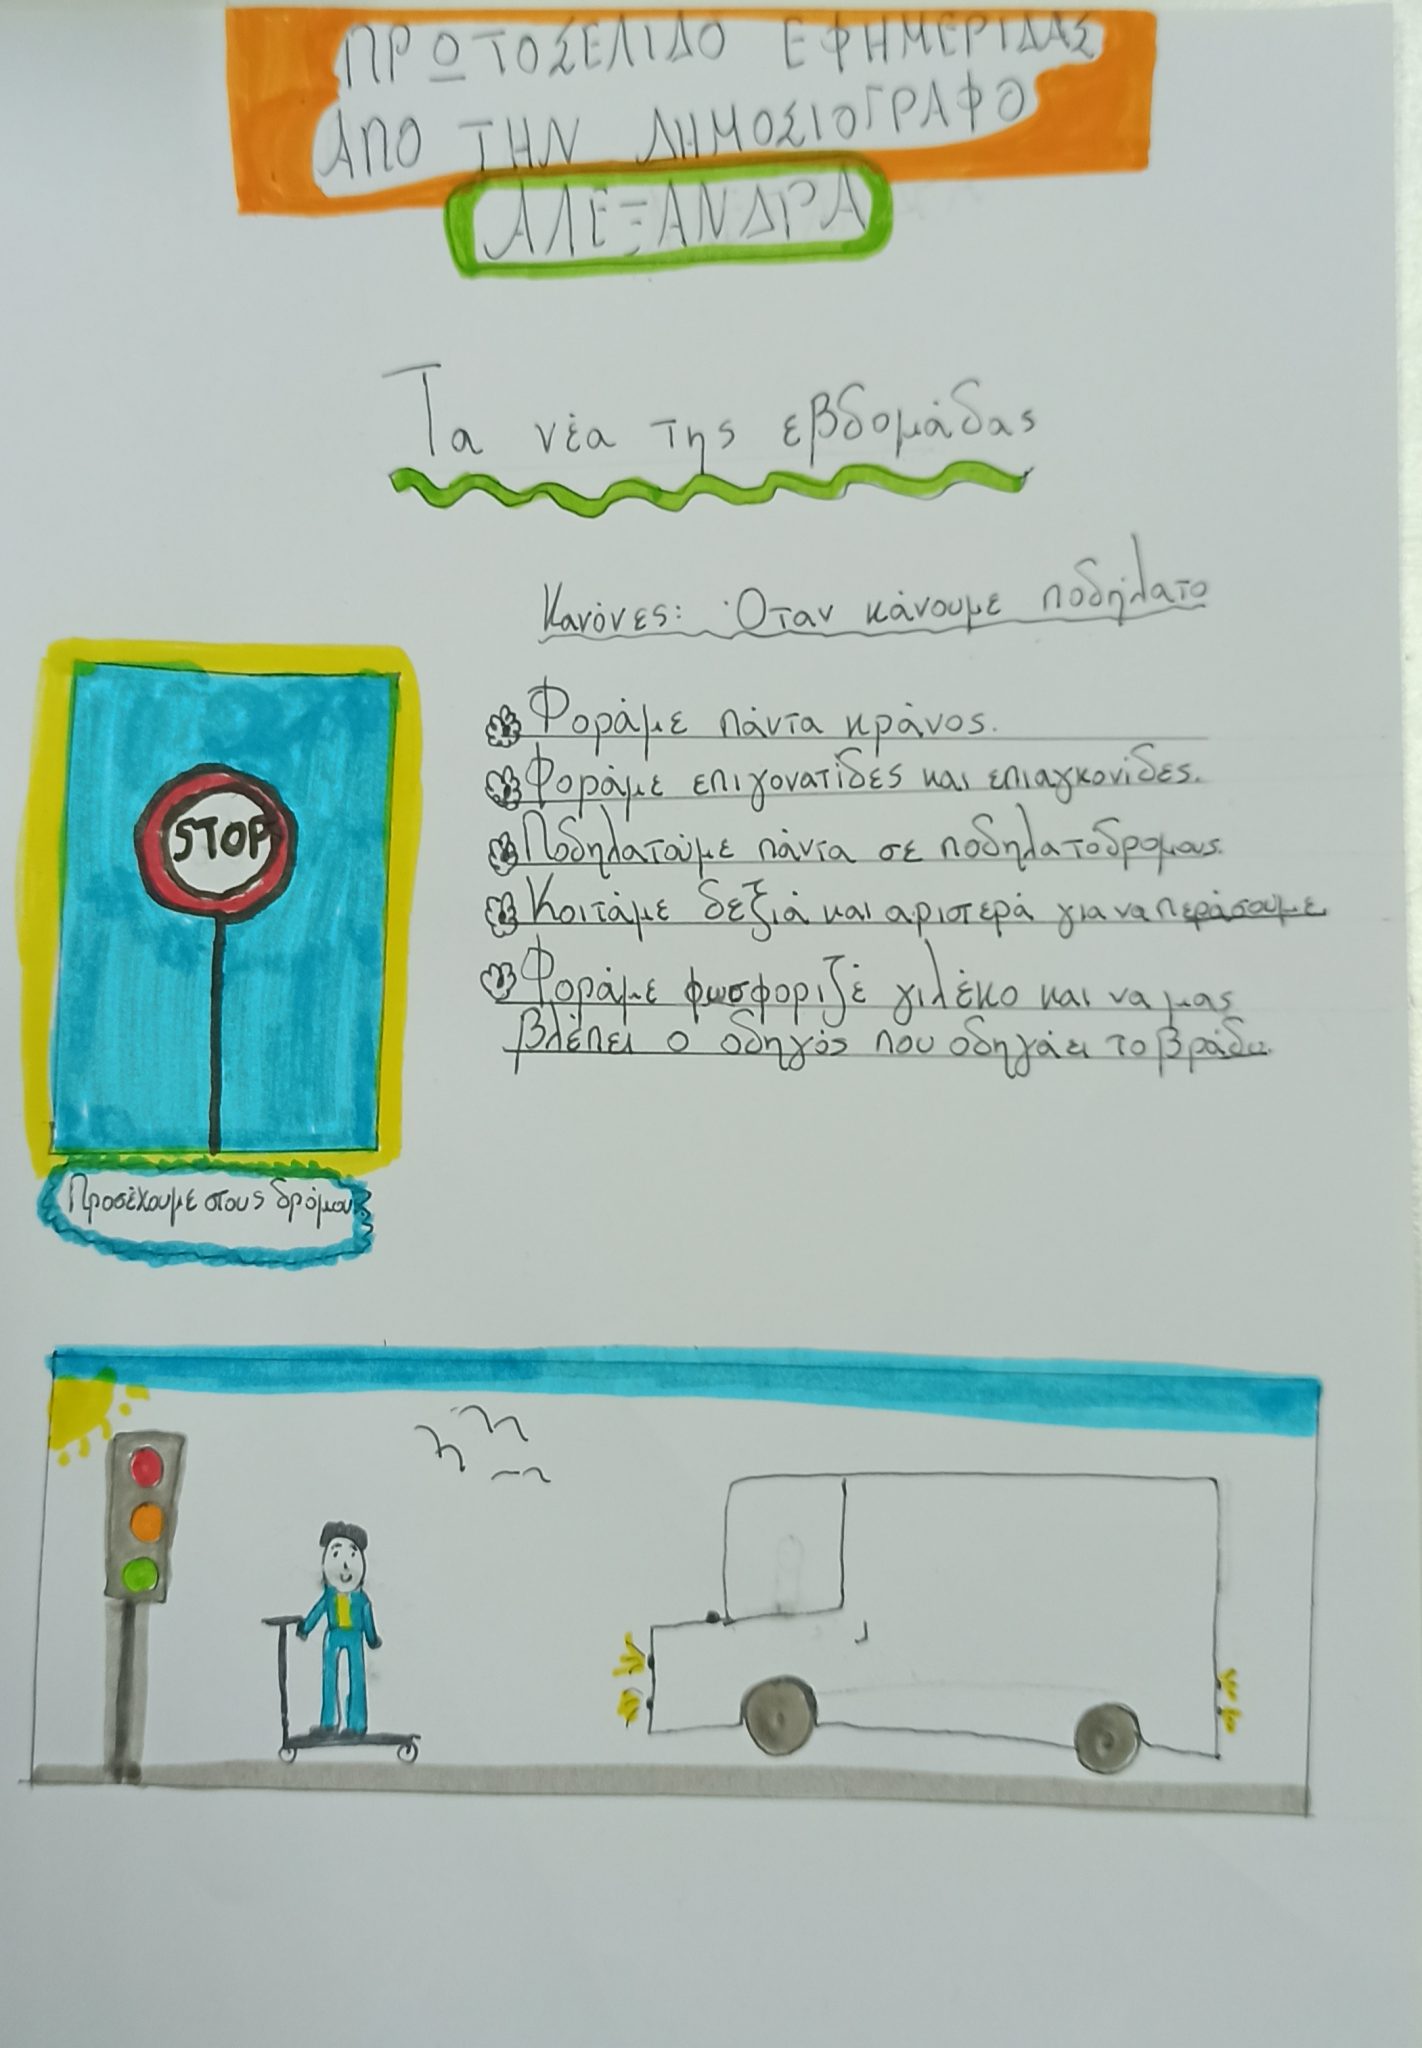 ΠΡΩΤΟΣΕΛΙΔΟ ΕΦΗΜΕΡΙΔΑΣ
ΑΠΟ ΤΗΝ ΔΗΜΟΣΙΟΓΡΑΦΟ
ΑΛΕΞΑΝΔΡΑ
Τα νέα της εβδομάδας
Κανόνες: Όταν κάνουμε ποδήλατο
Φοράμε πάντα κράνος.
Φοράμε επιγονατίδες και επιαγκονίδες.
Ποδηλατούμε πάντα σε ποδηλατοδρομους.
Κοιτάμε δεξιά και αριστερά για να περάσουμε
Φοράμε φωσφοριζέ γιλέκο και να μας
βλέπει ο οδηγός που οδηγάει το βράδυ.
STOP
Προσέχουμε στους δρόμους